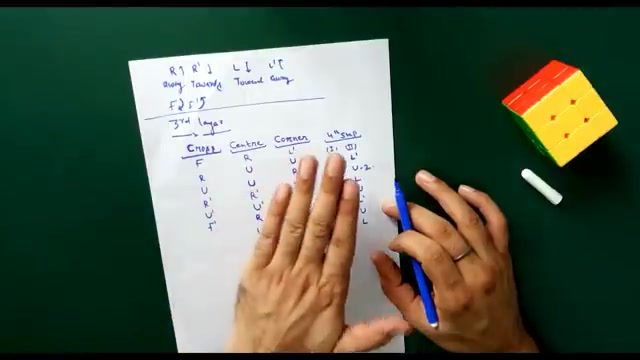 R↑ R' ↓ L ↓ L'↑
away Towards Toward away
3rd layer
Cross Centre Corner 4th step
F R L' (I) (II)
U U L'
R U R U-2
U R' L
R' U'
U' R U
F' L